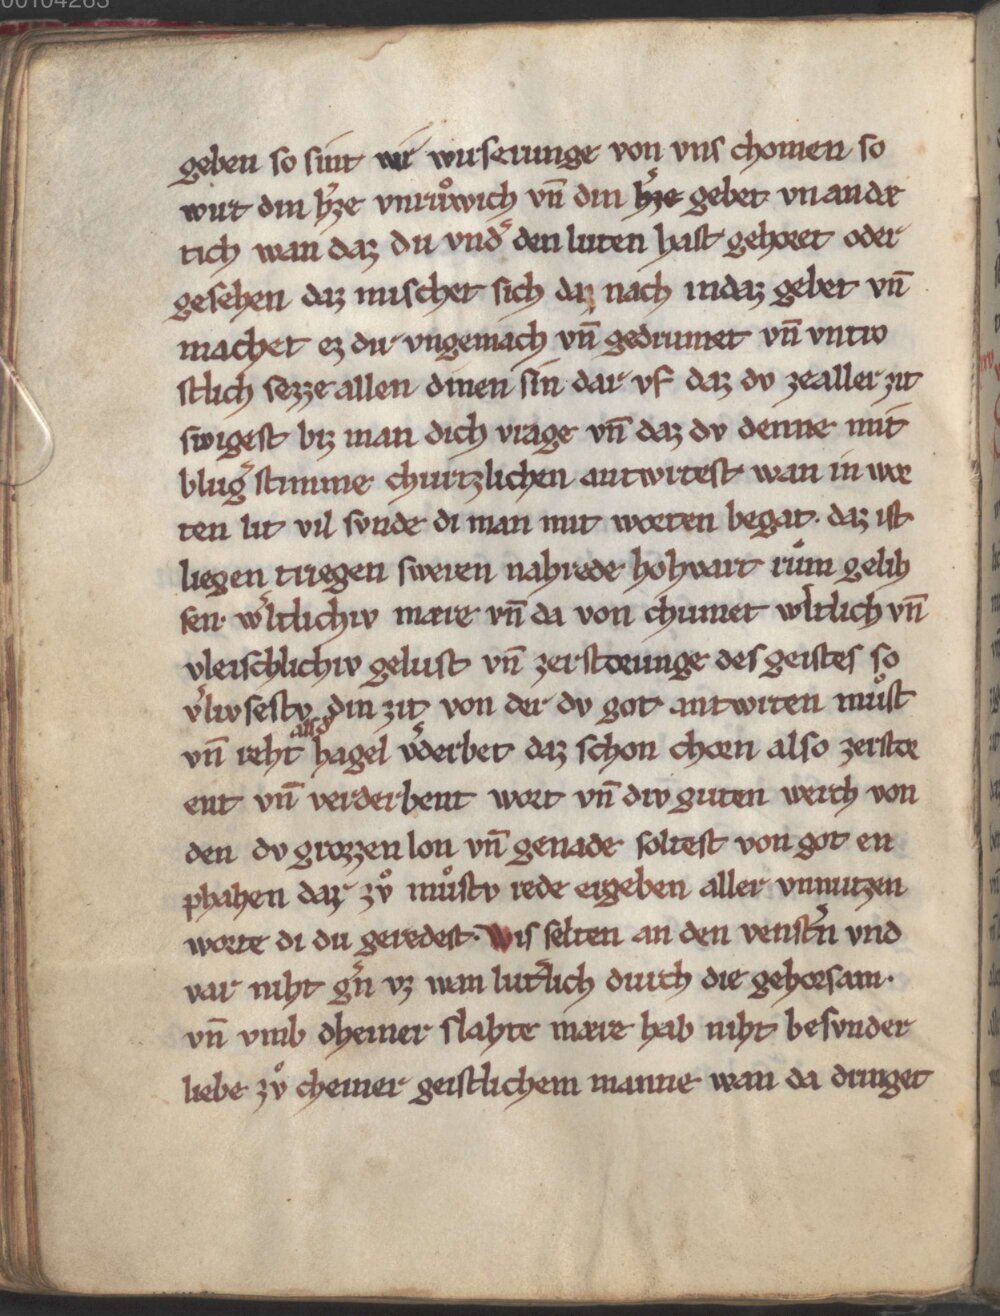 00104263
geben so sint wir wirserunge von vns chomen so
wirt din hˀze vnruͦwich vn̄ din hˀze gebet vnandæ
tich wan daz du vndˀ den luten hast gehoret oder
gesehen daz mischet sich dar nach indaz gebet vn̄
machet ez dir vngemach vn̄ gedrumet vn̄ vntro
stlich sezze allen dinen sin dar vf daz dv zealler zit
swigest biz man dich vrage vn̄ daz dv denne mit
blugˀ stimme churtzlichen antwrtest wan in wor
ten lit vil svnde di man mit worten begat· daz ist
liegen triegen sweren nahrede hohvart ruͤm gelih
sen· wˀltlichiv mære vn̄ da von chumet wˀltlich vn̄
vleischlichiv gelust vn̄ zerstorunge des geistes so
vˀlivsestv din zit von der dv got antwrten muͦst
vn̄ reht alsdˀ hagel vˀderbet daz schon chorn also zerstor
ent vn̄ verderbent wort vn̄ div guten werch von
den dv grozzen lon vn̄ genade soltest von got en
phahen dar zvͦ muͦstv rede ergeben aller vnnutzen
worte di du geredest· Wis selten an den venstˀn vnd
var niht gˀn vz wan lutˀlich durch die gehorsam·
vn̄ vmb dheiner slahte mære hab niht besvnder
liebe zvͦ cheiner geistlichem manne wan da dringet